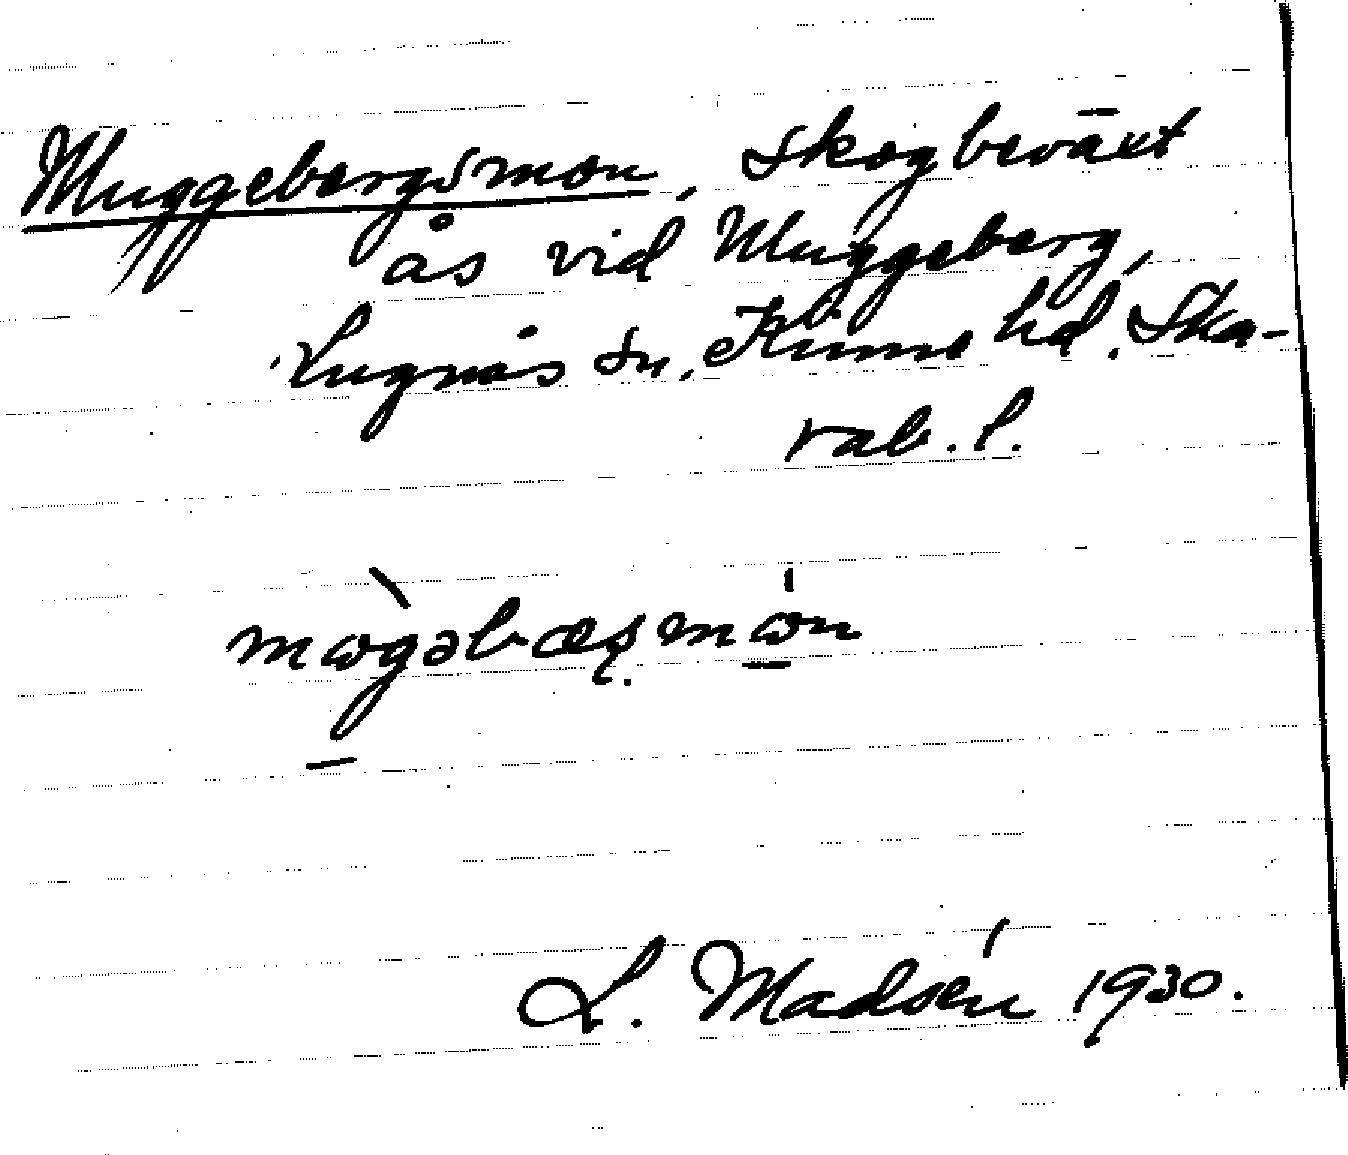 Muggebergsmon, skogbeväxt
ås vid Muggeberg,
Lugnås sn, Kinne hd. Ska-
rab. l.
L. Madsén 1930.